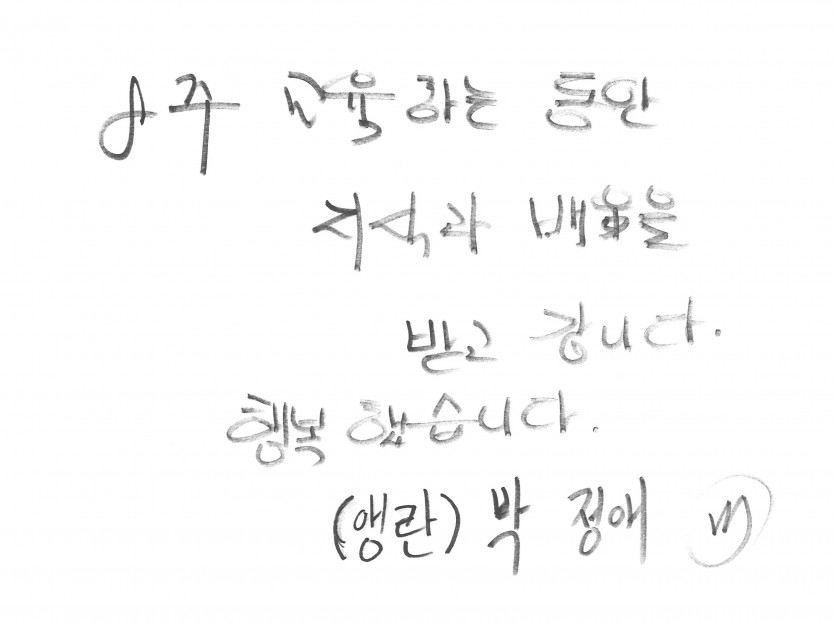 8주 교육하는 동안
지식과 배움을
받고 갑니다.
행복했습니다.
(앵란) 박 정애